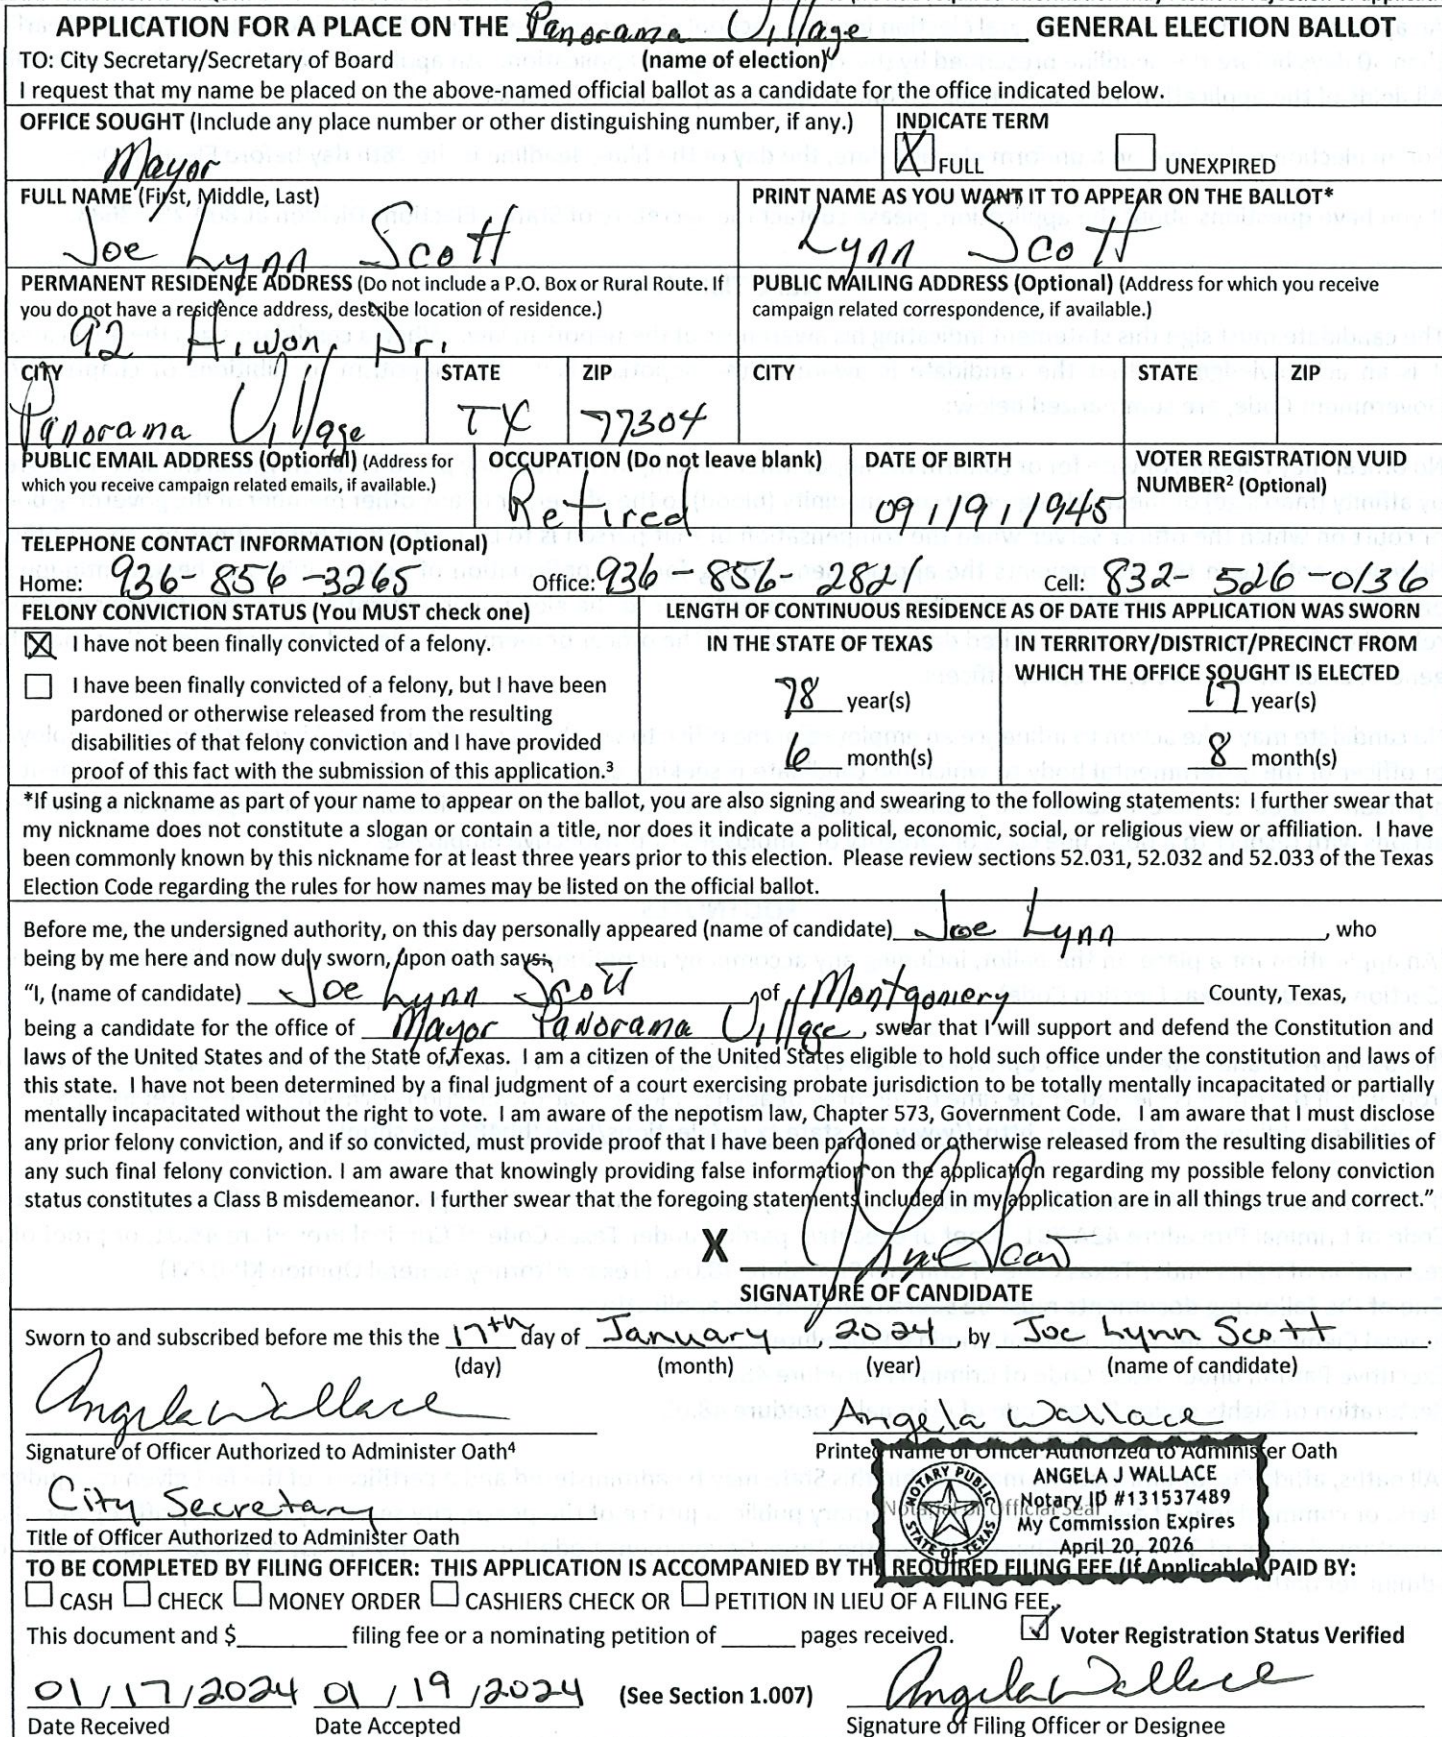 APPLICATION FOR A PLACE ON THE Panorama Village GENERAL ELECTION BALLOT
TO: City Secretary/Secretary of Board (name of election)
I request that my name be placed on the above-named official ballot as a candidate for the office indicated below.
OFFICE SOUGHT (Include any place number or other distinguishing number, if any.)
Mayor
INDICATE TERM
X FULL UNEXPIRED
FULL NAME (First, Middle, Last)
Joe Lynn Scott
PRINT NAME AS YOU WANT IT TO APPEAR ON THE BALLOT*
Lynn Scott
PERMANENT RESIDENCE ADDRESS (Do not include a P.O. Box or Rural Route. If
you do not have a residence address, describe location of residence.)
92 Hiwon Dr.
PUBLIC MAILING ADDRESS (Optional) (Address for which you receive
campaign related correspondence, if available.)
CITY STATE ZIP CITY STATE ZIP
Panorama Village TX 77304
PUBLIC EMAIL ADDRESS (Optional) (Address for
which you receive campaign related emails, if available.)
OCCUPATION (Do not leave blank)
Retired
DATE OF BIRTH
09/19/1945
VOTER REGISTRATION VUID
NUMBER² (Optional)
TELEPHONE CONTACT INFORMATION (Optional)
Home: 936-856-3265 Office: 936-856-2821 Cell: 832-526-0136
FELONY CONVICTION STATUS (You MUST check one)
X I have not been finally convicted of a felony.
I have been finally convicted of a felony, but I have been
pardoned or otherwise released from the resulting
disabilities of that felony conviction and I have provided
proof of this fact with the submission of this application.³
LENGTH OF CONTINUOUS RESIDENCE AS OF DATE THIS APPLICATION WAS SWORN
IN THE STATE OF TEXAS
78 year(s)
6 month(s)
IN TERRITORY/DISTRICT/PRECINCT FROM
WHICH THE OFFICE SOUGHT IS ELECTED
17 year(s)
8 month(s)
*If using a nickname as part of your name to appear on the ballot, you are also signing and swearing to the following statements: I further swear that
my nickname does not constitute a slogan or contain a title, nor does it indicate a political, economic, social, or religious view or affiliation. I have
been commonly known by this nickname for at least three years prior to this election. Please review sections 52.031, 52.032 and 52.033 of the Texas
Election Code regarding the rules for how names may be listed on the official ballot.
Before me, the undersigned authority, on this day personally appeared (name of candidate) Joe Lynn, who
being by me here and now duly sworn, upon oath says:
“I, (name of candidate) Joe Lynn Scott, of Montgomery County, Texas,
being a candidate for the office of Mayor Panorama Village, swear that I will support and defend the Constitution and
laws of the United States and of the State of Texas. I am a citizen of the United States eligible to hold such office under the constitution and laws of
this state. I have not been determined by a final judgment of a court exercising probate jurisdiction to be totally mentally incapacitated or partially
mentally incapacitated without the right to vote. I am aware of the nepotism law, Chapter 573, Government Code. I am aware that I must disclose
any prior felony conviction, and if so convicted, must provide proof that I have been pardoned or otherwise released from the resulting disabilities of
any such final felony conviction. I am aware that knowingly providing false information on the application regarding my possible felony conviction
status constitutes a Class B misdemeanor. I further swear that the foregoing statements included in my application are in all things true and correct.”
X
SIGNATURE OF CANDIDATE
Sworn to and subscribed before me this the 17th day of January, 2024, by Joe Lynn Scott.
(day) (month) (year) (name of candidate)
Angela Wallace Angela Wallace
Signature of Officer Authorized to Administer Oath⁴ Printed Name of Officer Authorized to Administer Oath
City Secretary
Title of Officer Authorized to Administer Oath
Notarial or Official Seal
NOTARY PUBLIC
STATE OF TEXAS
ANGELA J WALLACE
Notary ID #131537489
My Commission Expires
April 20, 2026
TO BE COMPLETED BY FILING OFFICER: THIS APPLICATION IS ACCOMPANIED BY THE REQUIRED FILING FEE (If Applicable) PAID BY:
CASH CHECK MONEY ORDER CASHIERS CHECK OR PETITION IN LIEU OF A FILING FEE.
This document and $________ filing fee or a nominating petition of ______ pages received. ✓ Voter Registration Status Verified
01/17/2024 01/19/2024 (See Section 1.007) Angela Wallace
Date Received Date Accepted Signature of Filing Officer or Designee